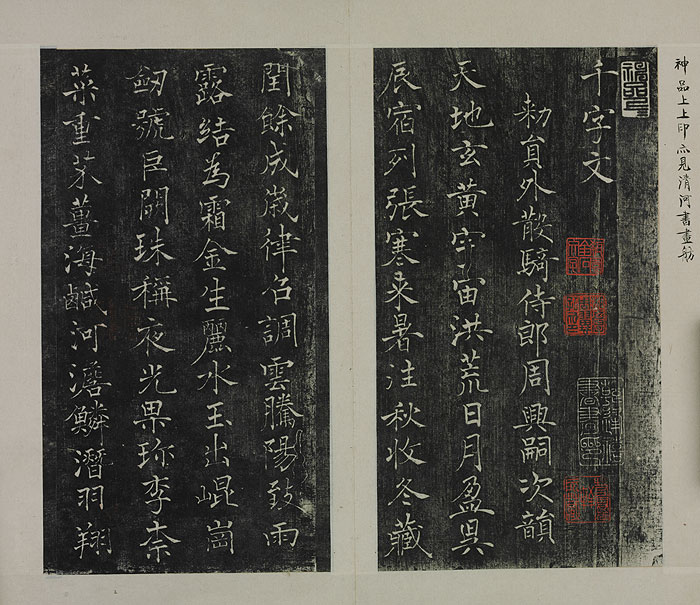 神品上上印亦見清河書畫舫
千字文
勑員外散騎侍郎周興嗣次韻
天地玄黃宇宙洪荒日月盈昃
辰宿列張寒來暑往秋收冬藏
閏餘成歲律召調雲騰陽致雨
露結為霜金生麗水玉出崐崗
劒號巨闕珠稱夜光果珎李柰
菜重芥薑海鹹河澹鱗潛羽翔